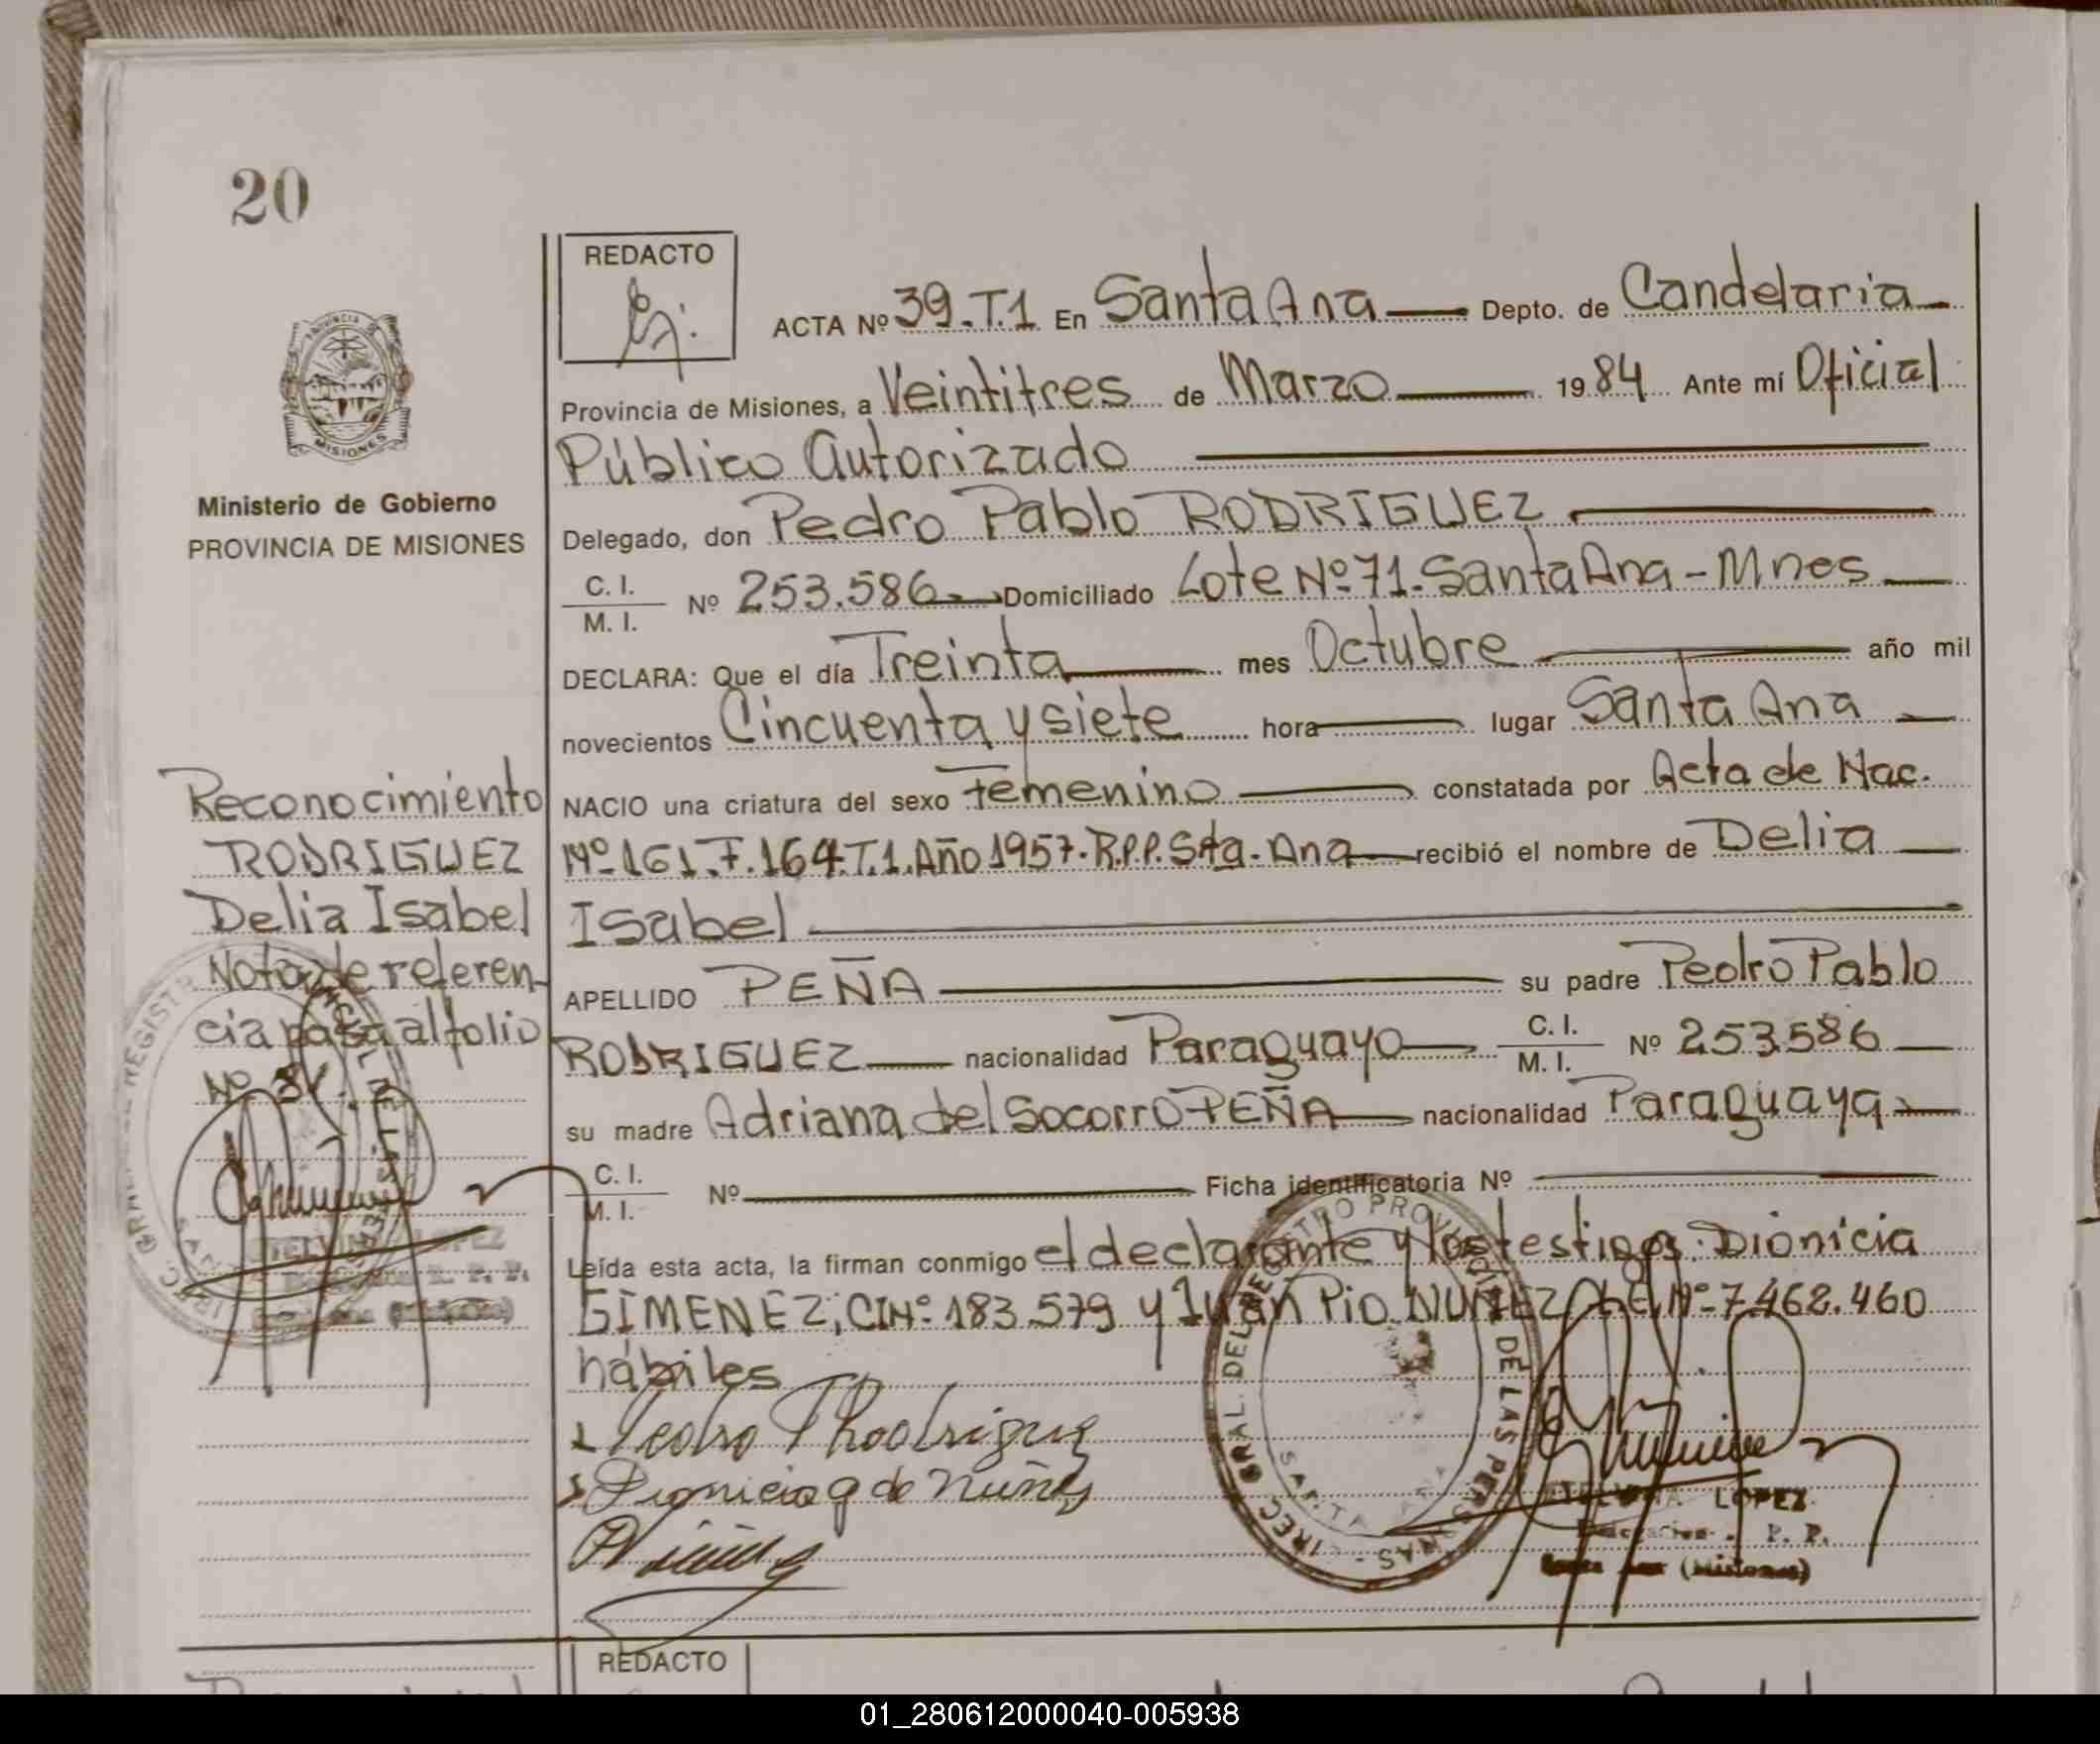 20
REDACTO
ACTA Nº 39.T.1 En Santa Ana Depto. de Candelaria
Provincia de Misiones, a Veintitres de Marzo 1984 Ante mí Oficial
Público Autorizado
Ministerio de Gobierno
PROVINCIA DE MISIONES
Delegado, don Pedro Pablo RODRIGUEZ
C. I.
M. I. Nº 253.586 Domiciliado Lote Nº 71. Santa Ana - Mnes
DECLARA: Que el día Treinta mes Octubre año mil
novecientos Cincuenta y siete hora lugar Santa Ana
NACIO una criatura del sexo Femenino constatada por Acta de Nac.
Nº 161.F.164.T.1.Año 1957.R.P.P.Sta.Ana recibió el nombre de Delia
Isabel
APELLIDO PEÑA su padre Pedro Pablo
RODRIGUEZ nacionalidad Paraguayo C. I. M. I. Nº 253.586
su madre Adriana del Socorro PEÑA nacionalidad Paraguaya
C. I. M. I. Nº Ficha identificatoria Nº
Leída esta acta, la firman conmigo el declarante y los testigos: Dionicia
GIMENEZ; CI Nº 183.579 y Juan Pio NUÑEZ Nº 7.462.460
hábiles
Reconocimiento
RODRIGUEZ
Delia Isabel
Nota de referen-
cia pasa al folio
Nº
Pedro P Rodriguez
Dionicia g de Nuñez
LOPEZ
LOPEZ
R. P.
(Misiones)
DIREC. GRAL. DEL REGISTRO PROVINCIAL DE LAS PERSONAS
SANTA ANA
REDACTO
01_280612000040-005938